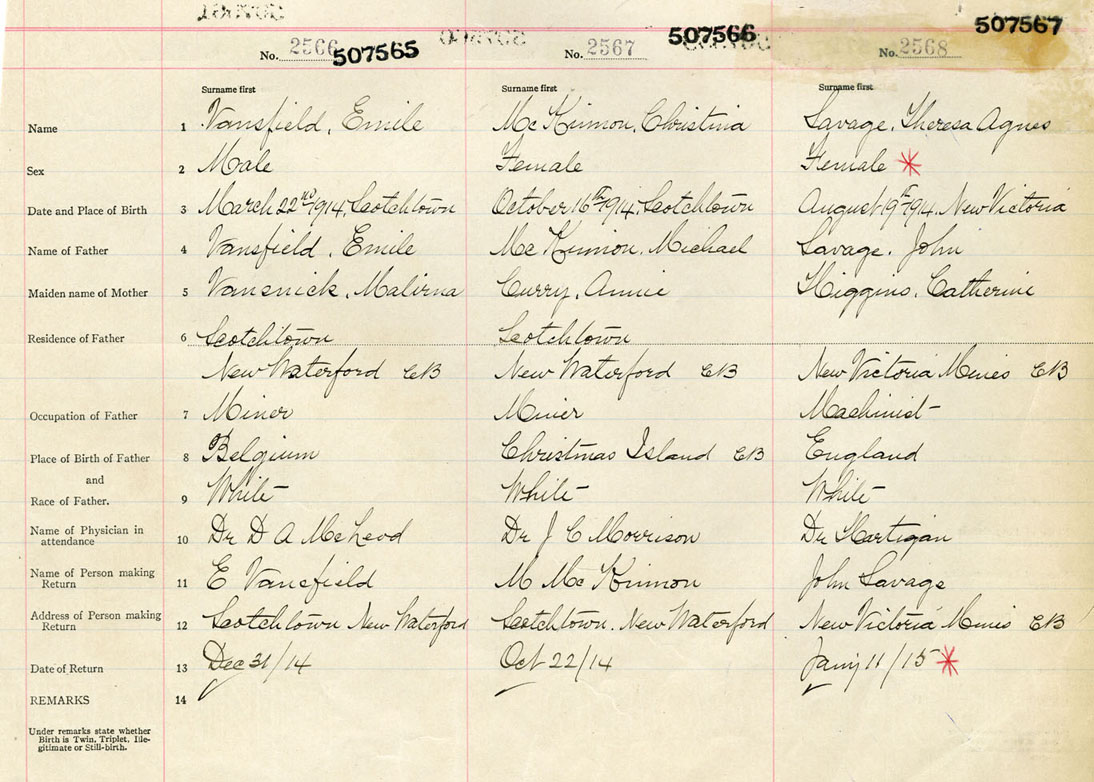 No. 2566 507565 No. 2567 507566 No. 2568 507567
Surname first Surname first Surname first
Name 1 Vansfield, Emile Mc Kinnon, Christina Savage, Theresa Agnes
Sex 2 Male Female Female *
Date and Place of Birth 3 March 22nd 1914, Scotchtown October 16th 1914, Scotchtown August 19th 1914, New Victoria
Name of Father 4 Vansfield, Emile Mc Kinnon, Michael Savage, John
Maiden name of Mother 5 Vansnick, Curry, Annie Higgins, Catherine
Residence of Father 6 Scotchtown Scotchtown
New Waterford CB New Waterford CB New Victoria Mines CB
Occupation of Father 7 Miner Miner Machinist
Place of Birth of Father 8 Belgium Christmas Island CB England
and
Race of Father. 9 White White White
Name of Physician in
attendance 10 Dr D A McLeod Dr J C Morrison Dr Hartigan
Name of Person making
Return 11 E Vansfield M Mc Kinnon John Savage
Address of Person making
Return 12 Scotchtown New Waterford Scotchtown, New Waterford New Victoria Mines CB
Date of Return 13 Dec 31/14 Oct 22/14 Jany 11/15 *
REMARKS 14
Under remarks state whether
Birth is Twin, Triplet, Ille-
gitimate or Still-birth.